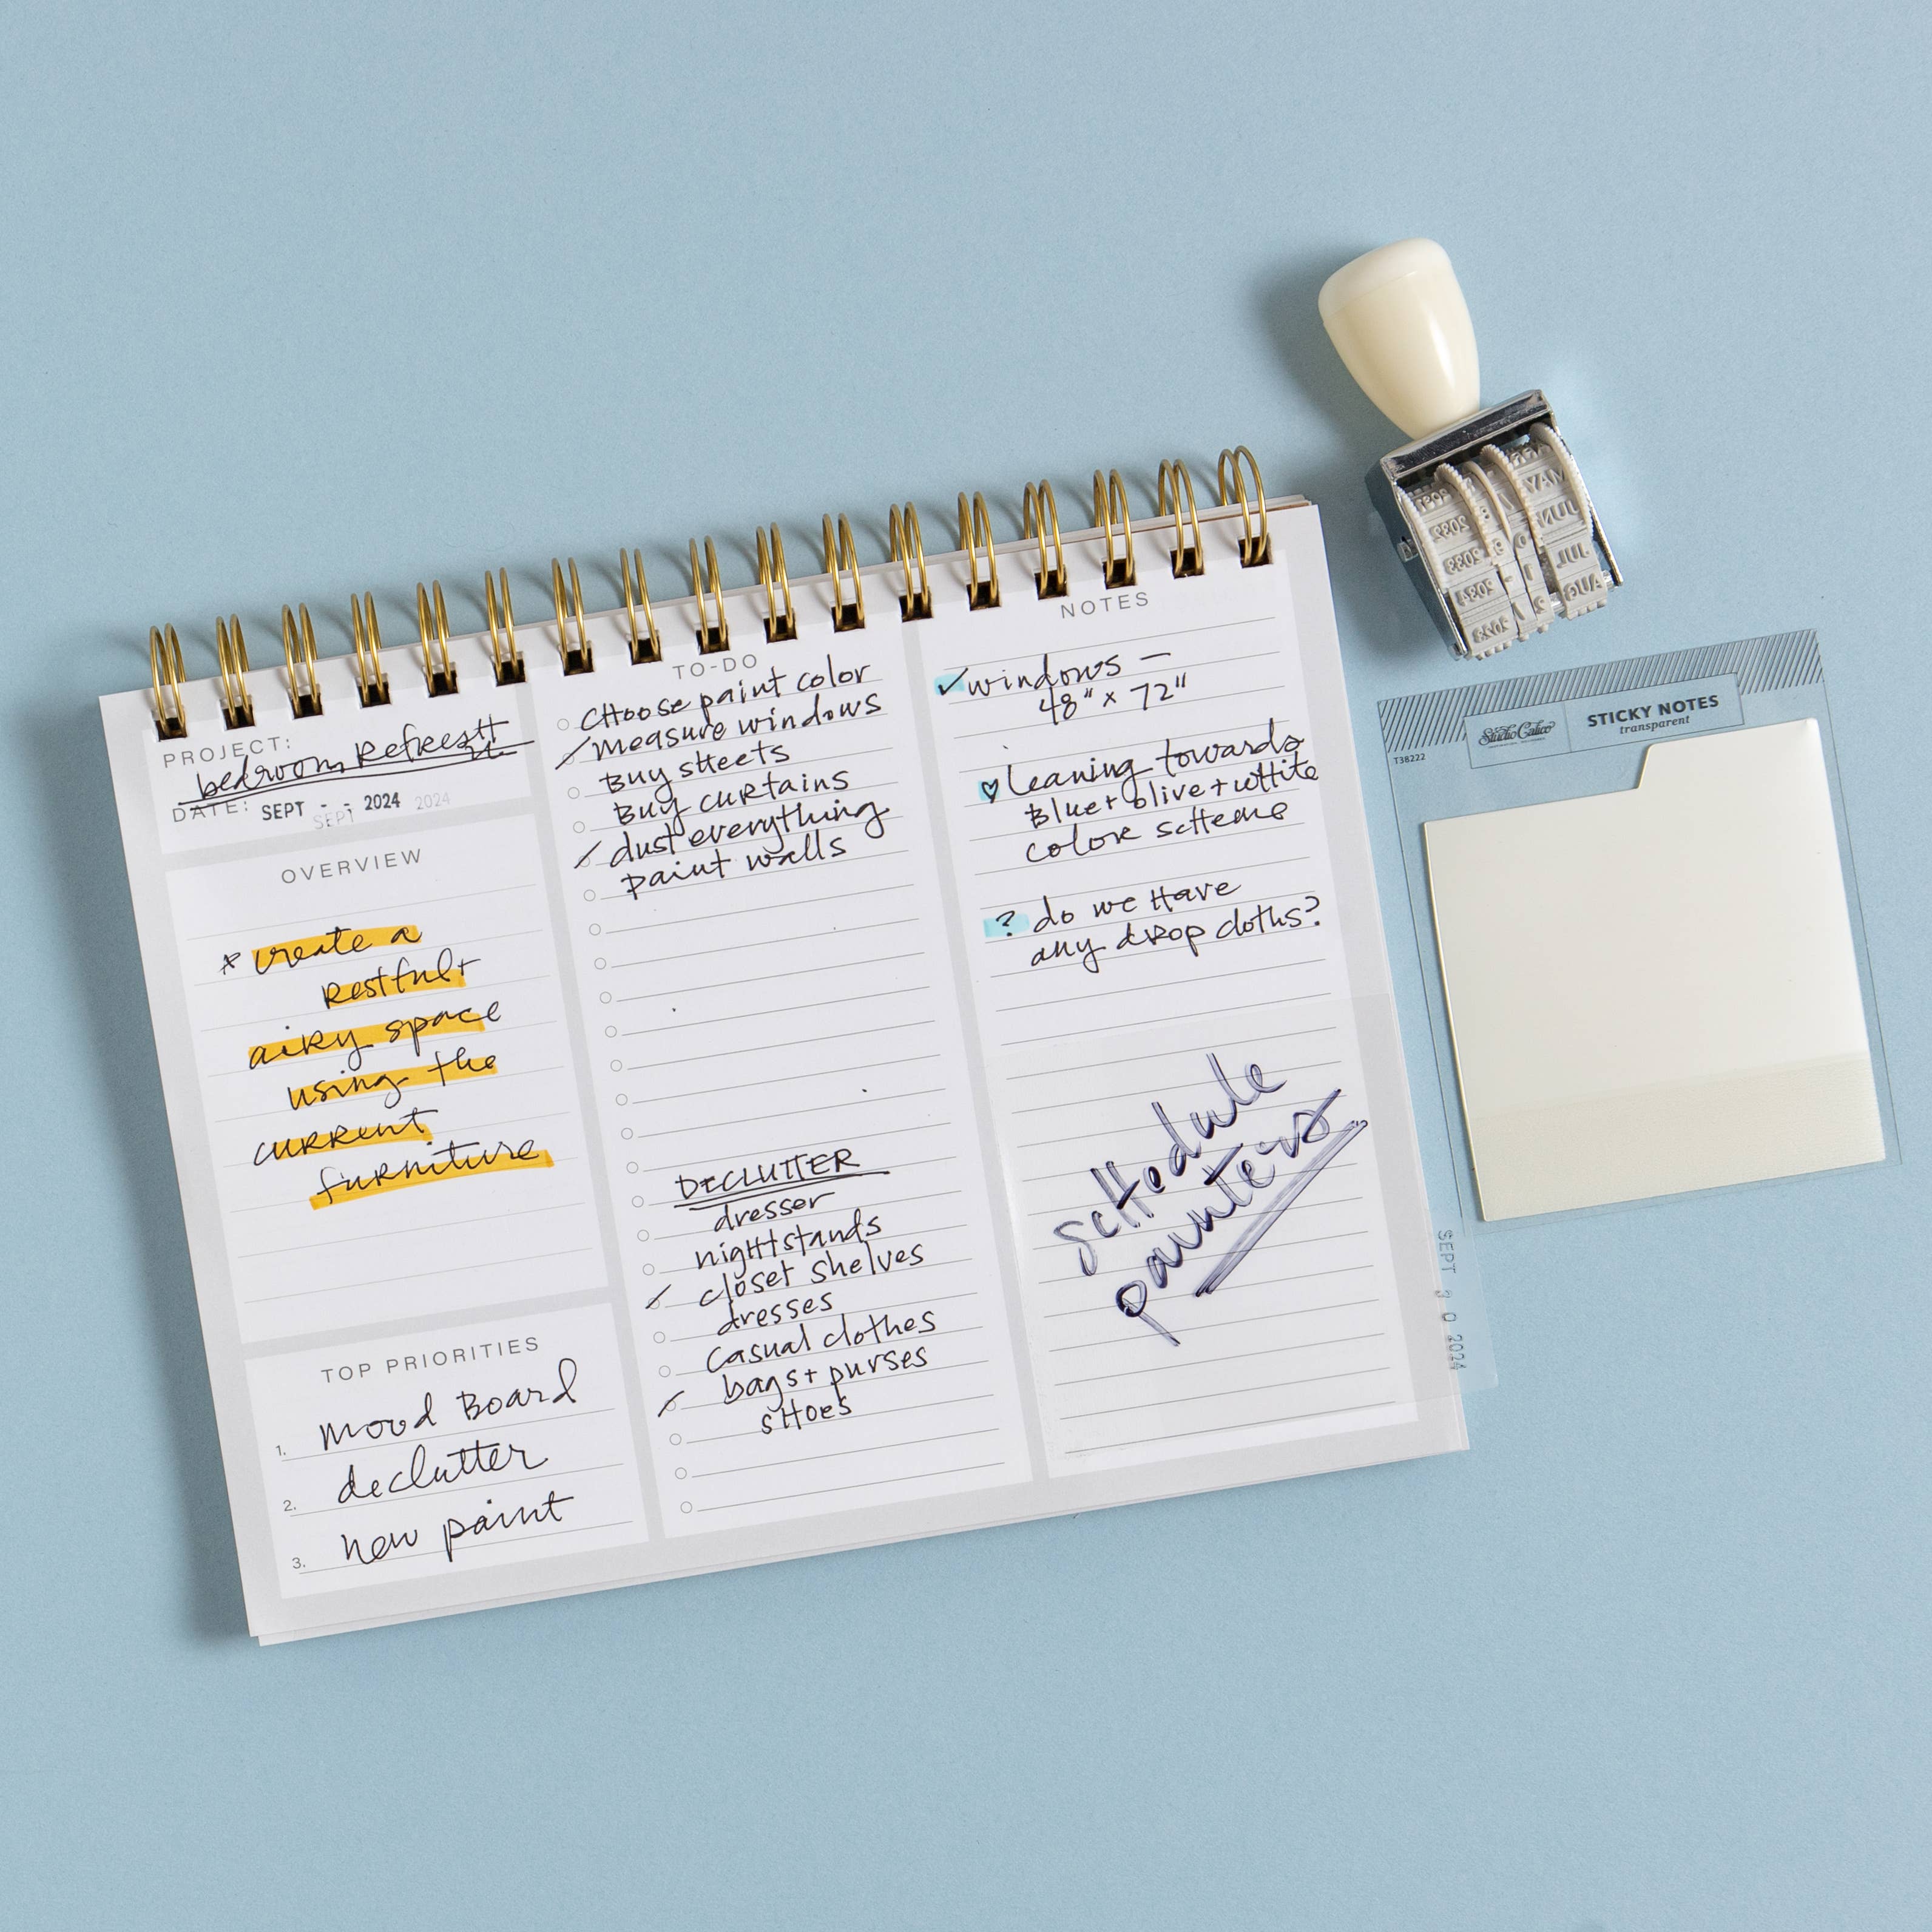 PROJECT:
bedroom Refresh
DATE: SEPT - - 2024 2024
SEPT
OVERVIEW
* create a
restful +
airy space
using the
current
furniture
TOP PRIORITIES
1. mood Board
2. declutter
3. new paint
TO-DO
CHoose paint color
measure windows
Buy sheets
Buy curtains
dust everything
paint walls
DECLUTTER
dresser
nightstands
closet shelves
dresses
casual clothes
bags + purses
shoes
NOTES
✓ windows —
48" x 72"
♡ leaning towards
Blue + olive + white
color scheme
? do we have
any drop cloths?
schedule
painters
SEPT 30 2024
Studio Calico
STICKY NOTES
transparent
T38222
MAY
JUN
JUL
AUG